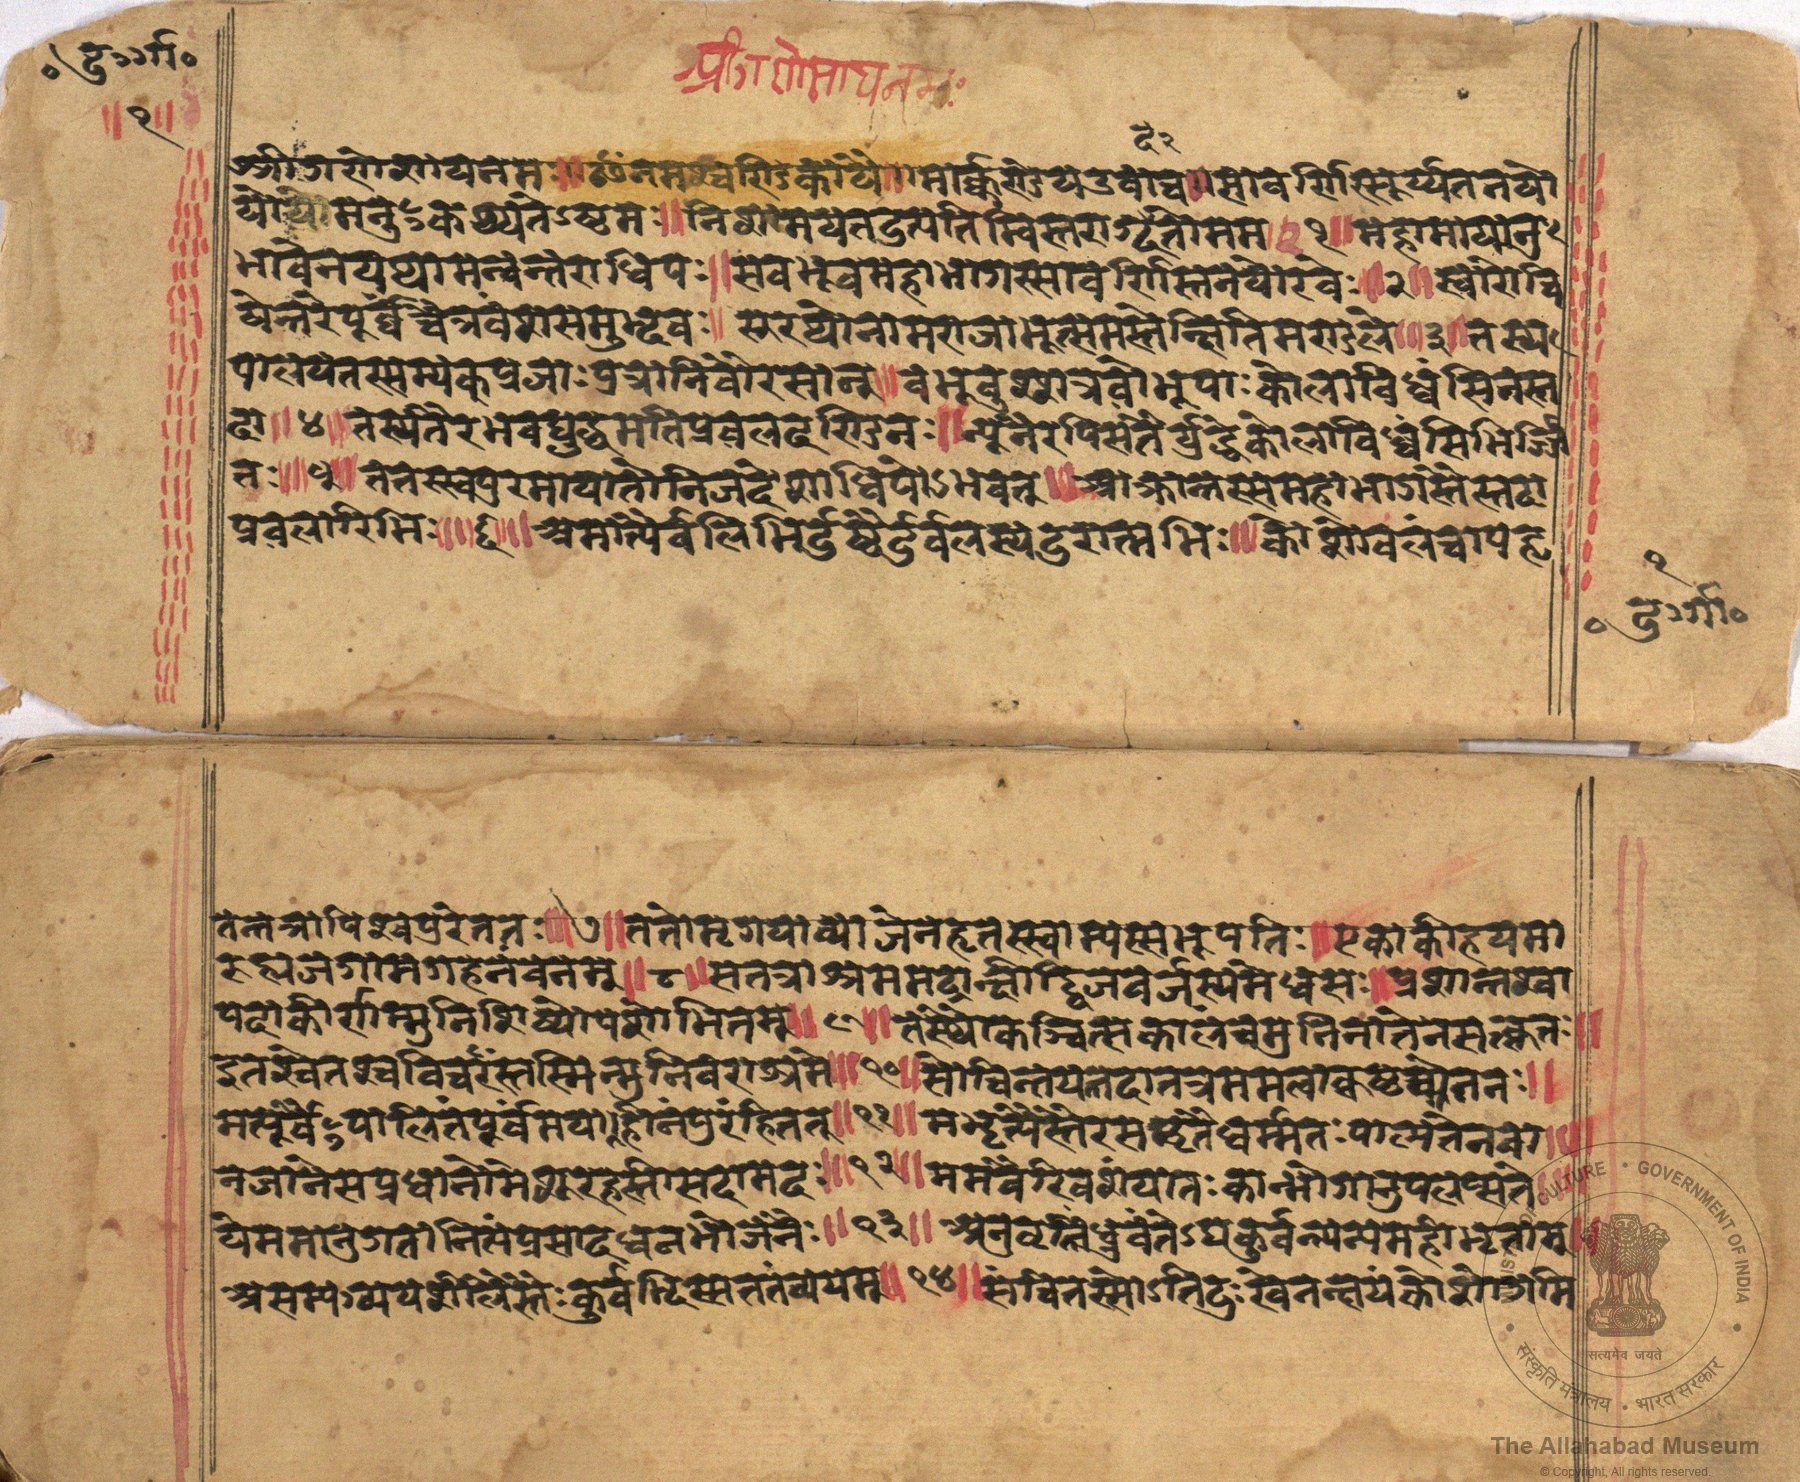 दुर्गा॰
॥१॥
श्रीगणेशायनमः
श्रीगणेशायनमः॥ॐनमश्चण्डिकायै॥मार्क्कण्डेयउवाच॥सावर्णिस्सूर्य्यतनयो
योयोमनुःकथ्यतेऽष्टमः॥निशामयतदुत्पत्तिम्विस्तराद्गदतोमम॥१॥महामायानु
भावेनयथामन्वन्तराधिपः॥सबभूवमहाभागस्सावर्णिस्तनयोरवेः॥२॥स्वारोचि
षेन्तरेपूर्व्वञ्चैत्रवंशसमुद्भवः॥सुरथोनामराजाभूत्समस्तेक्षितिमण्डले॥३॥तस्य
पालयतस्सम्यक्प्रजाःपुत्रानिवौरसान्॥बभूवुश्शत्रवोभूपाःकोलाविध्वंसिनस्त
दा॥४॥तस्यतैरभवद्युद्धमतिप्रबलदण्डिनः॥न्यूनैरपिसतैर्युद्धेकोलाविध्वंसिभिर्जि
तः॥५॥ततस्स्वपुरमायातोनिजदेशाधिपोऽभवत्॥आक्रान्तस्समहाभागस्तैस्तदा
प्रबलारिभिः॥६॥अमात्यैर्बलिभिर्दुष्टैर्दुर्बलस्यदुरात्मभिः॥कोशोबलंचापहृ
१
दुर्गा॰
तंतत्रापिस्वपुरेततः॥७॥ततोमृगयाव्याजेनहृतस्स्वाम्यस्सभूपतिः॥एकाकीहयमा
रुह्यजगामगहनंवनम्॥८॥सतत्राश्रममद्राक्षीद्द्विजवर्जस्यमेधसः॥प्रशान्तश्वा
पदाकीर्णम्मुनिशिष्योपशोभितम्॥९॥तस्थौकञ्चित्सकालंचमुनिनातेनसत्कृतः॥
इतश्चेतश्चविचरंस्तस्मिन्मुनिवराश्रमे॥१०॥सोचिन्तयत्तदातत्रममत्वाकृष्टचेतनः॥
मत्पूर्वैःपालितंपूर्वंमयाहीनंपुरंहितत्॥११॥मद्भृत्यैस्तैरसद्वृत्तैर्धर्म्मतःपाल्यतेनवा॥
नजानेसप्रधानोमेशूरहस्तीसदामदः॥१२॥ममवैरिवशंयातःकान्भोगानुपलप्स्यते॥
येममानुगतानित्यंप्रसादधनभोजनैः॥१३॥अनुवृत्तिंध्रुवंतेऽद्यकुर्वन्त्यन्यमहीभृताम्॥
असम्यग्व्ययशीलैस्तैःकुर्वद्भिस्सततंव्ययम्॥१४॥संचितस्सोऽतिदुःखेनक्षयंकोशोगमि